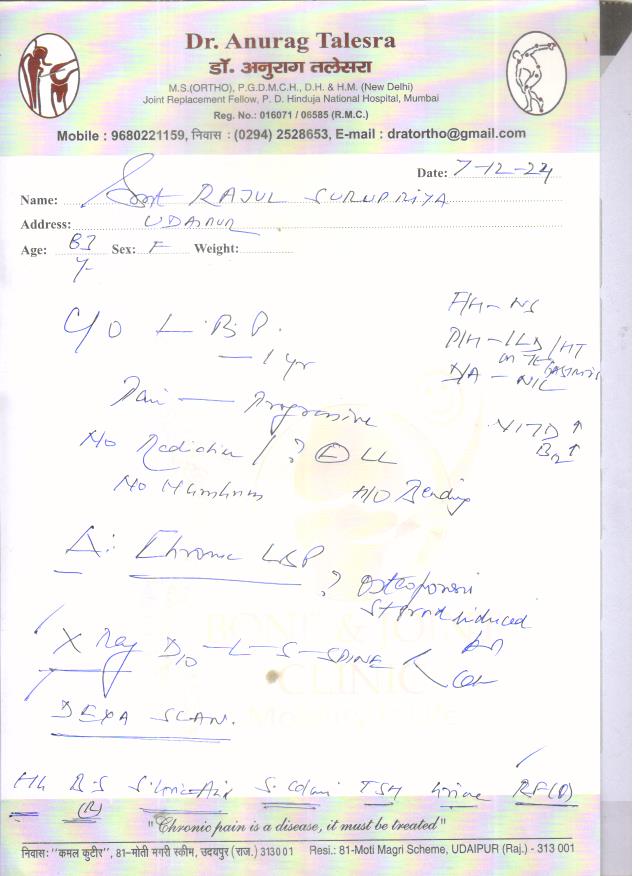 Dr. Anurag Talesra
डॉ. अनुराग तलेसरा
M.S.(ORTHO), P.G.D.M.C.H., D.H. & H.M. (New Delhi)
Joint Replacement Fellow, P. D. Hinduja National Hospital, Mumbai
Reg. No.: 016071 / 06585 (R.M.C.)
Mobile : 9680221159, निवास : (0294) 2528653, E-mail : dratortho@gmail.com
Date: 7-12-24
Name: Smt RAJUL SURUPRIYA
Address: UDAIPUR
Age: 83 y Sex: F Weight:
F/H - NS
C/O L.B.P. P/H - ILD / HT
- 1 yr
D/A - NIL
Pain — Progressive
VIT D ↑
B12 ↑
No Radiation / ? (L) LL
No Numbness H/O Bending
Δ: Chronic LBP
? Osteoporosis
Steroid induced
X Ray D10 - L - S - SPINE < AP
Lat
DEXA SCAN.
BONE & JOINT
CLINIC
Hb B-S S. Uric Acid S. Calcium TSH Urine RF(Q)
(R)
"Chronic pain is a disease, it must be treated"
निवास: "कमल कुटीर", 81-मोती मगरी स्कीम, उदयपुर (राज.) 313001 Resi.: 81-Moti Magri Scheme, UDAIPUR (Raj.) - 313 001